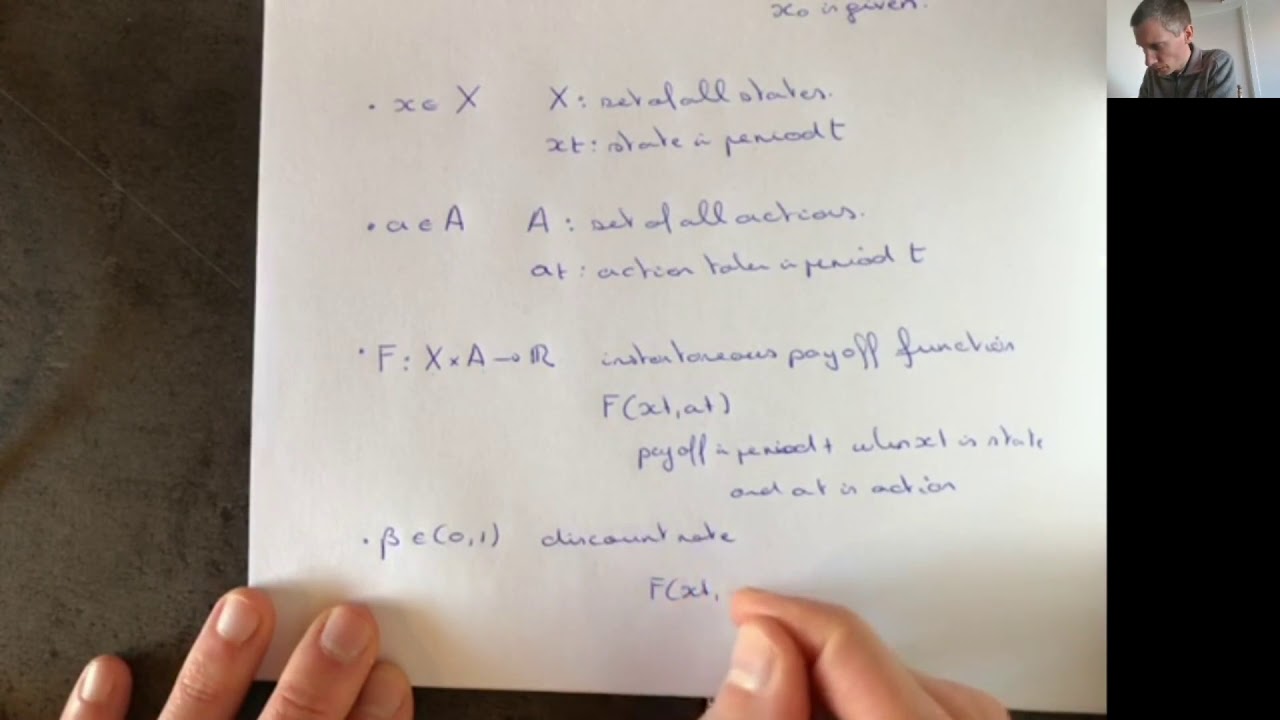 x0 is given.
· x ∈ X X : set of all states.
xt : state in period t
· a ∈ A A : set of all actions.
at : action taken in period t
· F : X × A → ℝ instantaneous payoff function
F(xt, at)
payoff in period t when xt is state
and at is action
· β ∈ (0,1) discount rate
F(xt,